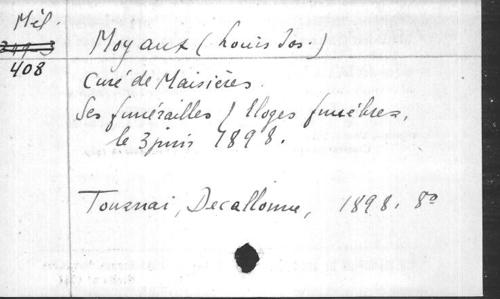 Mél.
408
Moyaux (Louis Jos.)
Curé de Maisières.
Ses funérailles / Eloges funèbres,
le 3 juin 1898.
Tournai, Decallonne, 1898. 8º